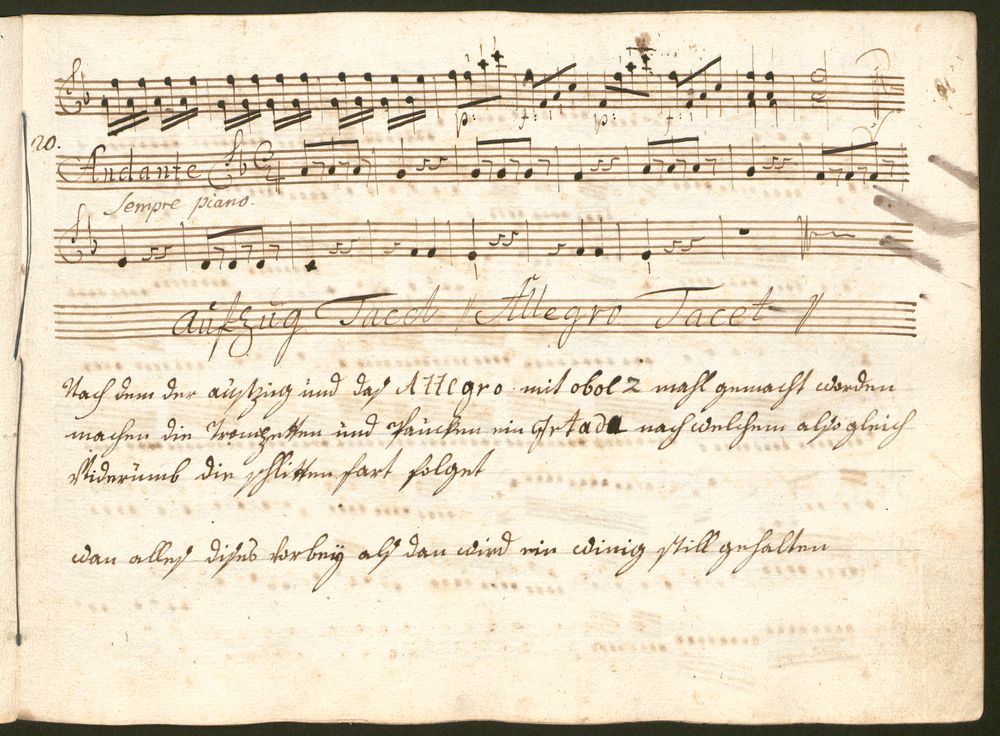 p: f: p: f:
20.
Andante
Sempre piano.
aufzug Tacet Allegro Tacet
Nach dem der aufzug und das Allegro mit obol 2 mahl gemacht worden
machen die Trompetten und Paucken ein nach welchem also gleich
Widerumb die schlittenfart folget
wan alles dises vorbey als dan wird ein winig still gehalten